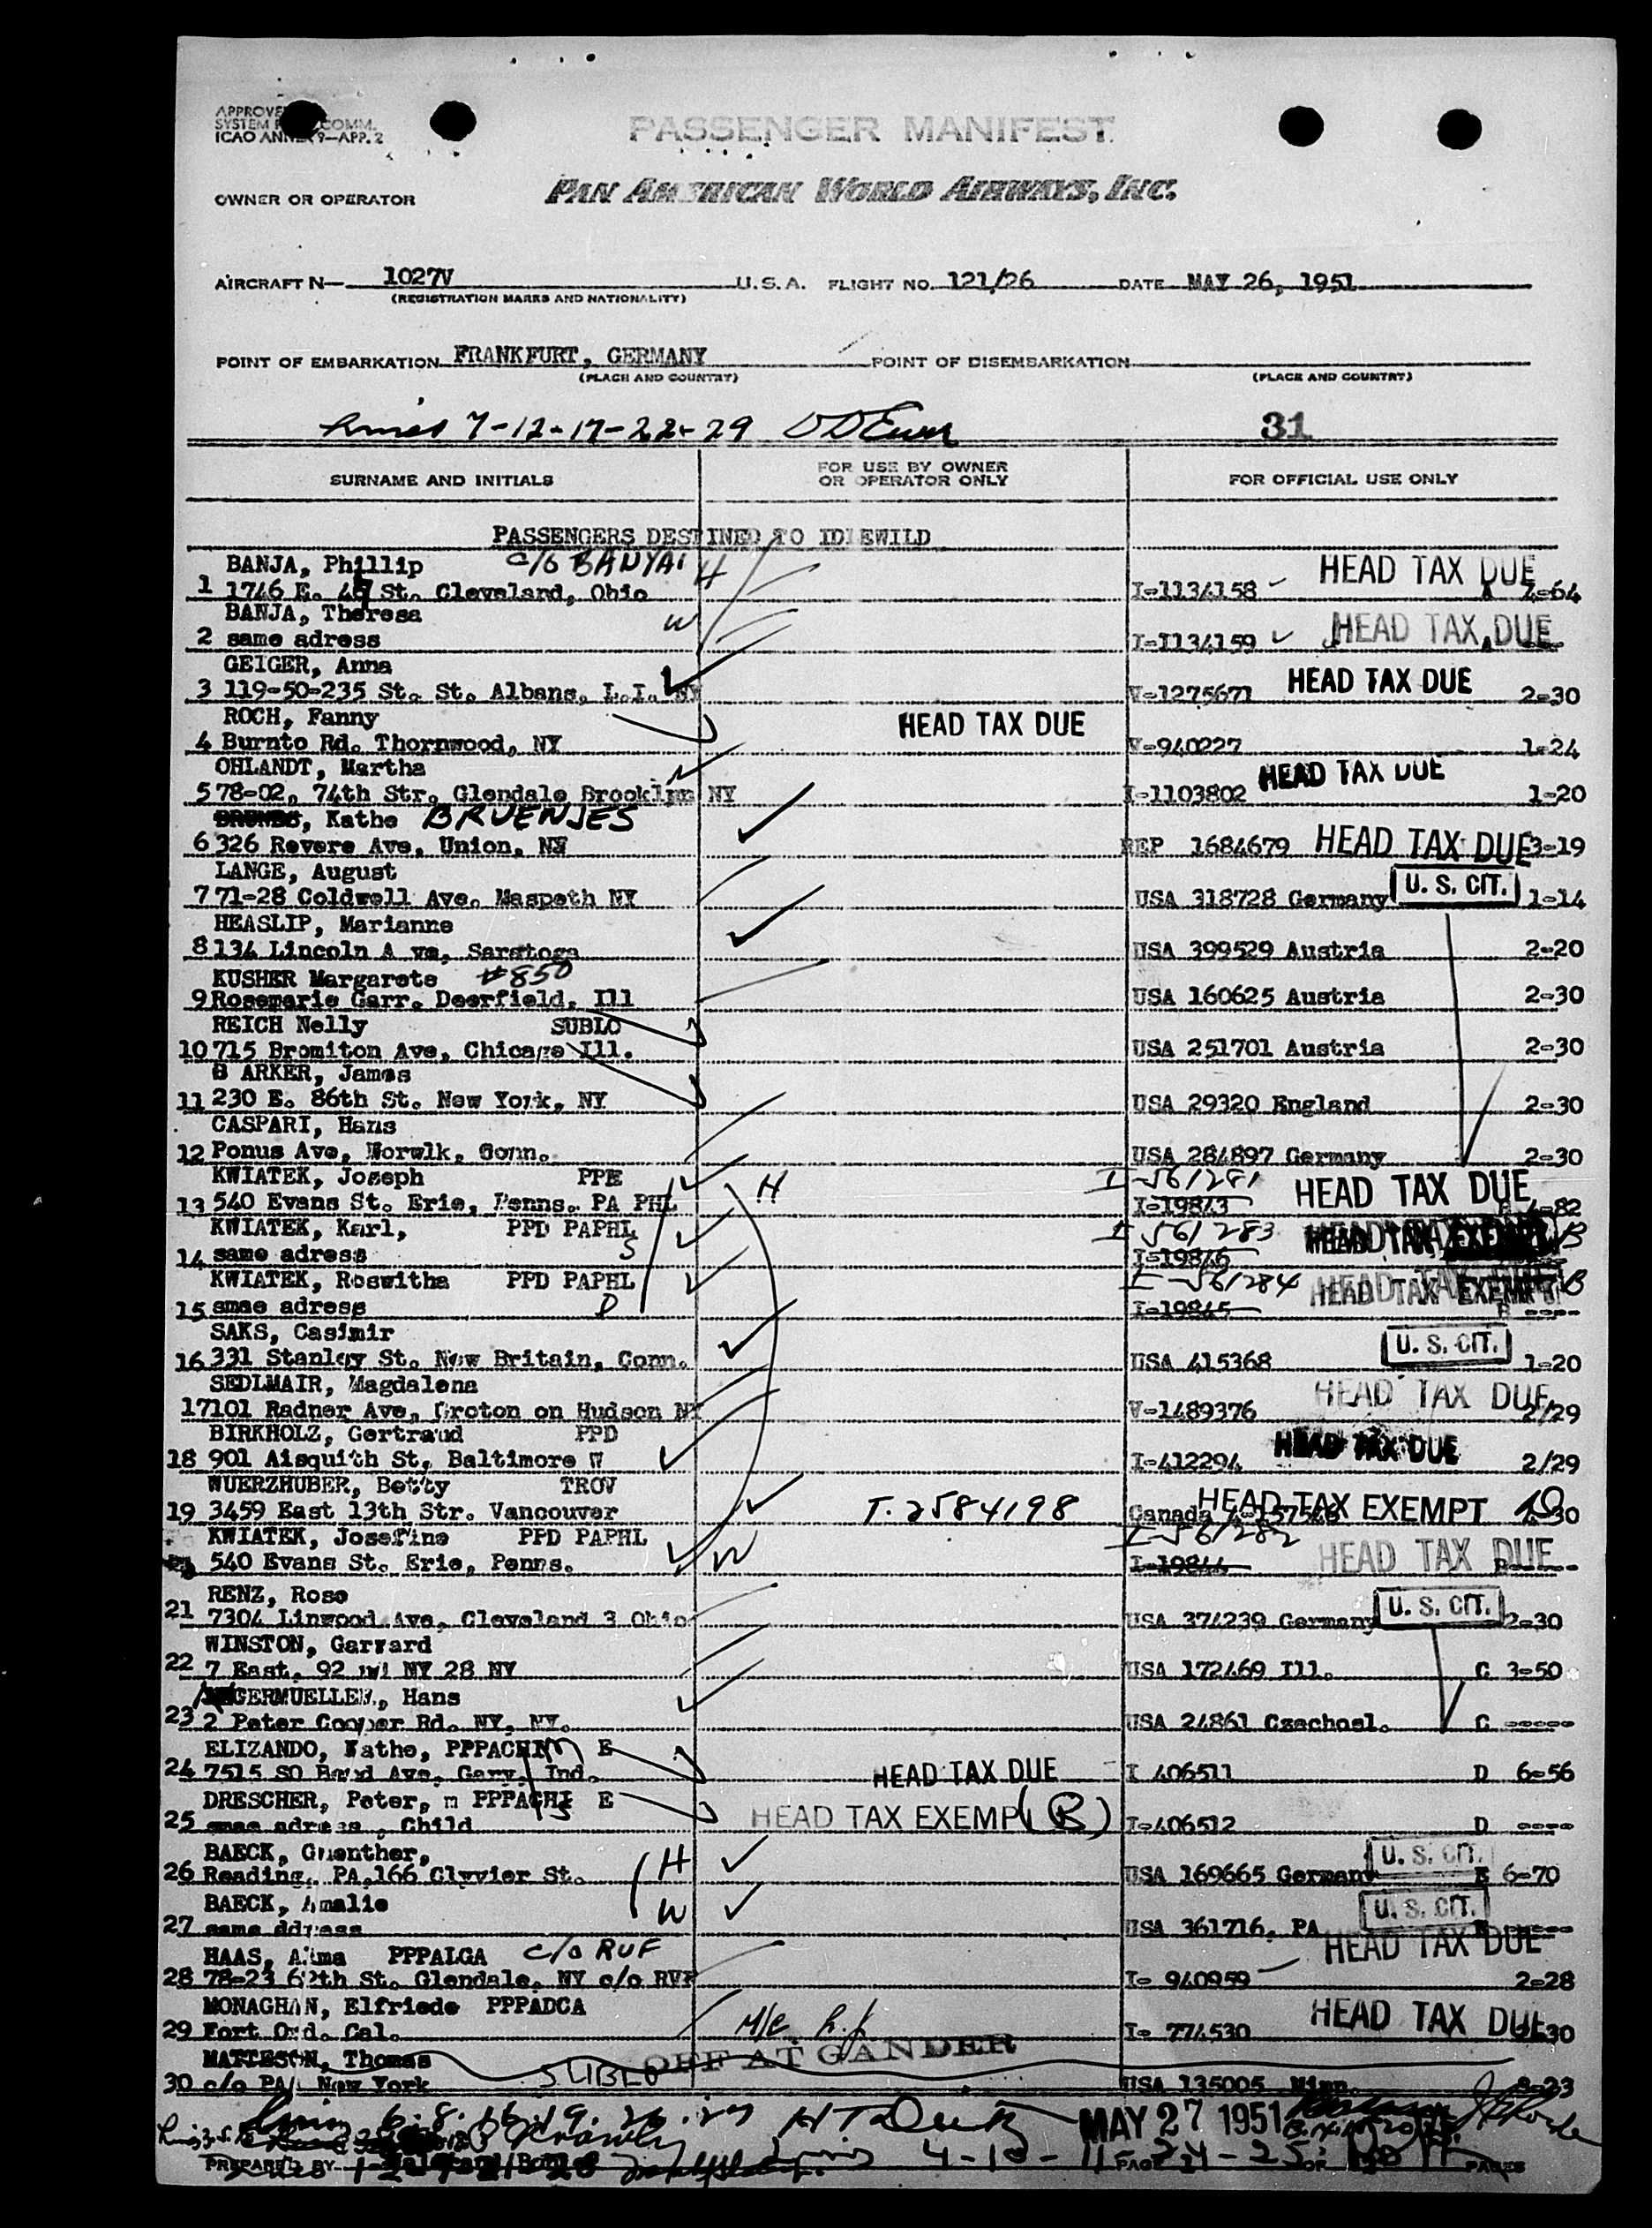 PASSENGER MANIFEST
ICAO ANNEX 9—APP. 2
OWNER OR OPERATOR
PAN AMERICAN WORLD AIRWAYS, INC.
AIRCRAFT N— 1027V U.S.A. FLIGHT NO. 121/26 DATE MAY 26, 1951
(REGISTRATION MARKS AND NATIONALITY)
POINT OF EMBARKATION FRANKFURT, GERMANY POINT OF DISEMBARKATION
(PLACE AND COUNTRY) (PLACE AND COUNTRY)
7-12-17-22-29 31
SURNAME AND INITIALS FOR USE BY OWNER OR OPERATOR ONLY FOR OFFICIAL USE ONLY
PASSENGERS DESTINED TO IDLEWILD
BANJA, Phillip c/o BANYAI H HEAD TAX DUE
1 1746 E. 47 St. Cleveland, Ohio I-1134158 A 7-64
BANJA, Theresa W
2 same adress I-1134159 HEAD TAX DUE
GEIGER, Anna
3 119-50-235 St. St. Albans, L.I. NY V-1275671 HEAD TAX DUE 2-30
ROCH, Fanny HEAD TAX DUE
4 Burnto Rd. Thornwood, NY V-940227 1-24
OHLANDT, Martha HEAD TAX DUE
5 78-02, 74th Str. Glendale Brooklyn NY I-1103802 1-20
, Kathe BRUENJES
6 326 Revere Ave. Union, NY REP 1684679 HEAD TAX DUE 3-19
LANGE, August
7 71-28 Coldwell Ave. Maspeth NY USA 318728 Germany U. S. CIT. 1-14
HEASLIP, Marianne
8 134 Lincoln A ve, Saratoga USA 399529 Austria 2-20
KUSHER Margarete #850
9 Rosemarie Garr. Deerfield, Ill USA 160625 Austria 2-30
REICH Nelly SUBLO
10 715 Bromiton Ave, Chicage Ill. USA 251701 Austria 2-30
B ARKER, James
11 230 E. 86th St. New York, NY USA 29320 England 2-30
CASPARI, Hans
12 Ponus Ave, Norwlk, Conn. USA 284897 Germany 2-30
KWIATEK, Joseph PPE H I-561281
13 540 Evans St. Erie, Penns. PA PHL I-19843 HEAD TAX DUE -82
KWIATEK, Karl, PPD PAPHL S I 561283
14 same adress I-19846 B
KWIATEK, Roswitha PPD PAPHL I-561284
15 smae adress D I-19845 HEAD TAX EXEMPT B
SAKS, Casimir
16 331 Stanley St. New Britain, Conn. USA 415368 U. S. CIT. 1-20
SEDLMAIR, Magdalena
17 101 Radner Ave, Croton on Hudson NY V-1489376 HEAD TAX DUE 2/29
BIRKHOLZ, Gertraud PPD
18 901 Aisquith St, Baltimore I-412294 HEAD TAX DUE 2/29
WUERZHUBER, Betty TROV
19 3459 East 13th Str. Vancouver T. 2584198 Canada HEAD TAX EXEMPT 10
KWIATEK, Josefine PPD PAPHL I-561282
540 Evans St. Erie, Penns. W I-19844 HEAD TAX DUE
RENZ, Rose
21 7304 Linwood Ave, Cleveland 3 Ohio USA 374239 Germany U. S. CIT. 2-30
WINSTON, Garrard
22 7 East, 92 NY 28 NY USA 172469 Ill. C 3-50
GERMUELLER, Hans
23 2 Peter Cooper Rd. NY, NY. USA 24861 Czechosl. C -----
ELIZANDO, Kathe, PPPACHI E
24 7515 SO Bend Ave, Gary, Ind. HEAD TAX DUE I 406511 D 6-56
DRESCHER, Peter, m PPPACHI E
25 smae adress , Child HEAD TAX EXEMPT (B) I-406512 D ----
BAECK, Guenther, H
26 Reading, PA, 166 Clyvier St. USA 169665 Germany U. S. CIT. E 6-70
BAECK, Amalie W
27 same ddress USA 361716, PA U. S. CIT.
HAAS, Alma PPPALGA c/o RUF HEAD TAX DUE
28 78-23 62th St. Glendale, NY c/o RVF I- 940959 2-28
MONAGHAN, Elfriede PPPADCA
29 Fort Ord. Cal. I- 774530 HEAD TAX DUE 30
MATTESON, Thomas OFF AT GANDER
30 c/o PA New York SUBLO USA 135005 Minn. 8-23
MAY 27 1951
PREPARED BY PAGE OF PAGES